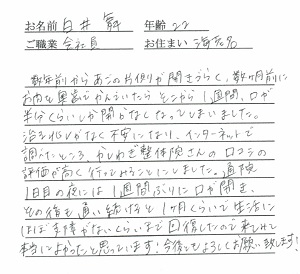 お名前 白井 年齢 22
ご職業 会社員 お住まい 海老名
数年前からあごの片側が開きづらく、数ヶ月前に
お肉を奥歯でかんでいたら そこから1週間、口が
半分くらいしか開かなくなってしまいました。
治る兆しがなく不安になり、インターネットで
調べたところ、かしわぎ整体院さんの口コミの
評価が高く行ってみることにしました。通院
1日目の夜には1週間ぶりに口が開き、
その後も通い続けると1ヶ月くらいで生活に
ほぼ支障がないくらいまで回復したので来てみて
本当によかったと思っています！今後ともよろしくお願い致します！